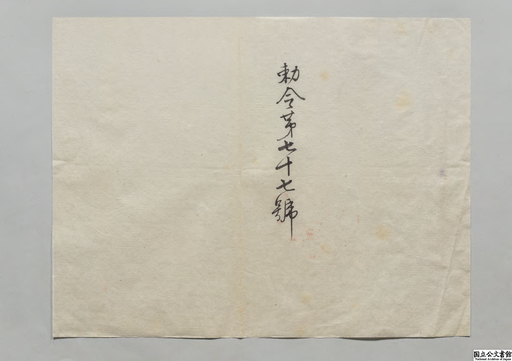 勅令第七十七號
国立公文書館
National Archives of Japan